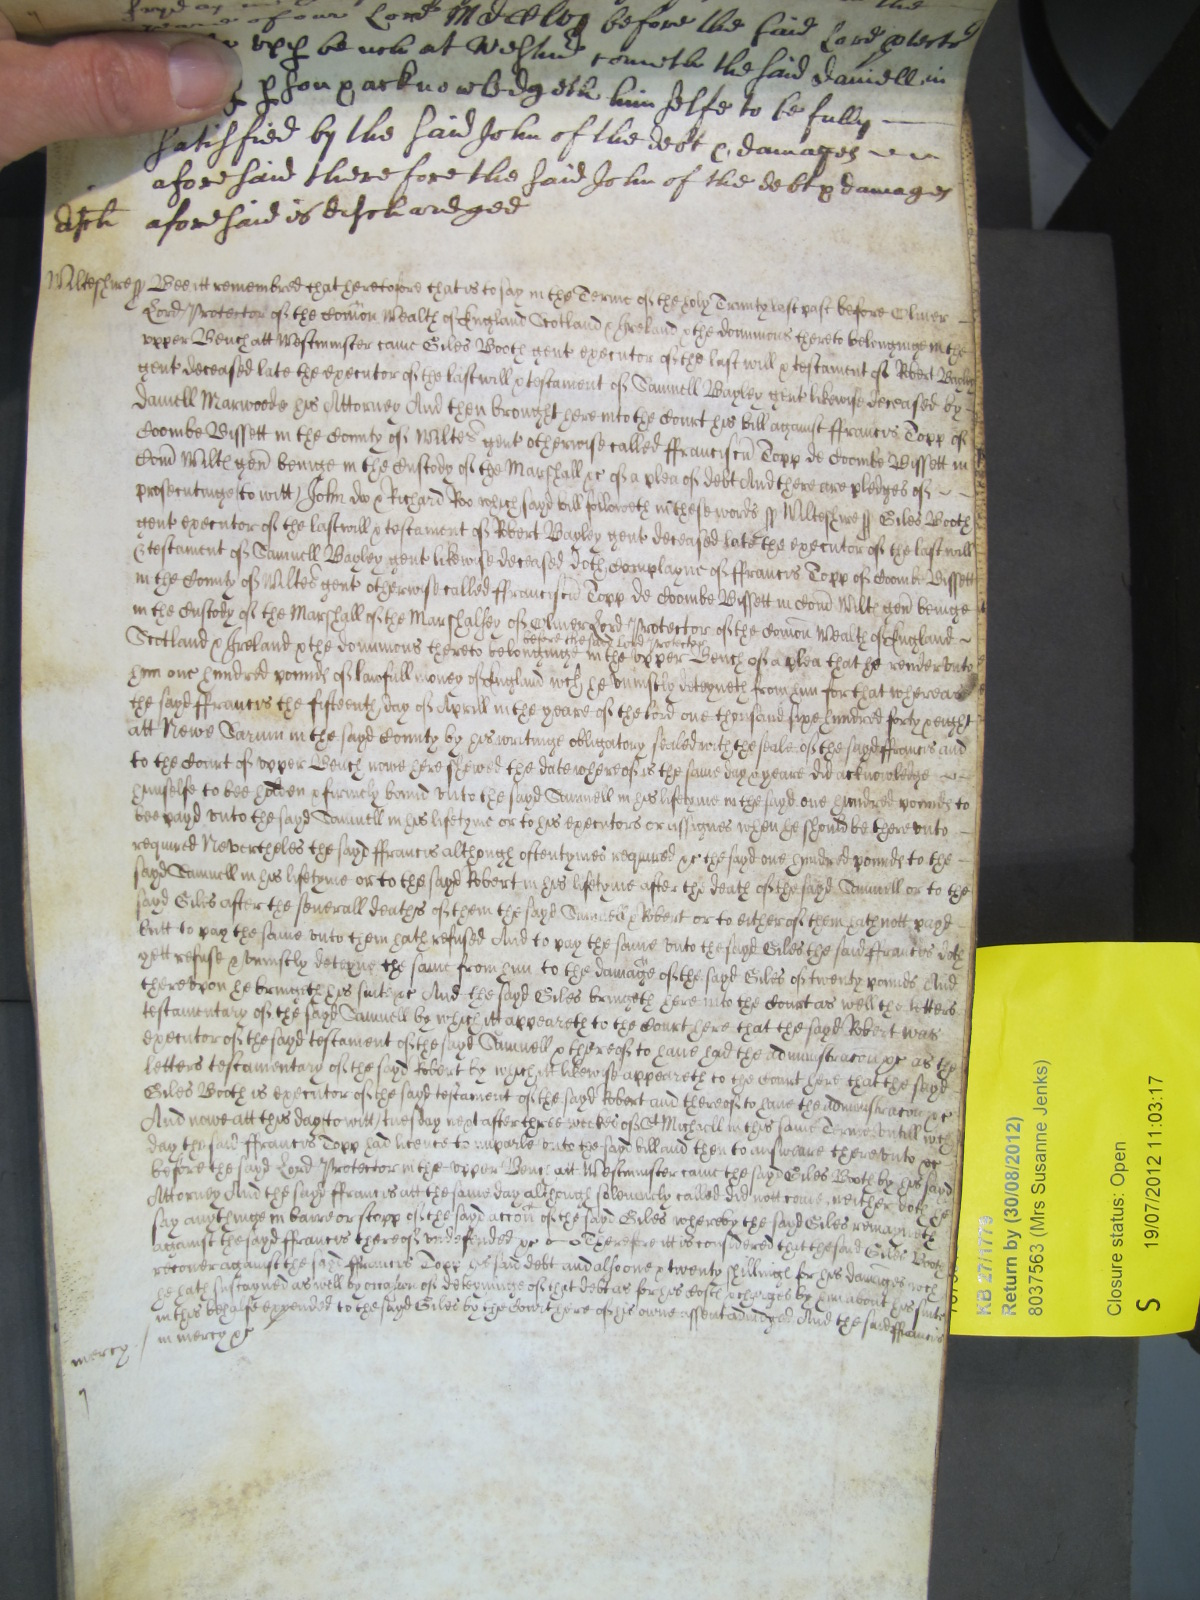 yeare of our Lord MDCLV before the said Lord Protector
upp bench at Westmr cometh the said Daniell in
pson & acknowledgeth him selfe to be fully
satisfied by the said John of the debt & damages
aforesaid therefore the said John of the debt & damages
disch aforesaid is dischardged
Wilteshire ss Bee itt remembred that heretofore that is to say in the Terme of the holy Trinity last past before Oliver
Lord Protector of the Comon Wealth of England Scotland & Ireland & the dominions thereto belonginge in the
upper Bench att Westminster came Giles Booth gent executor of the last will & testament of Robert Bayley
gent deceased late the executor of the last will & testament of Samuell Bayley gent likewise deceased by
Daniell Marwoode his Attorney And then brought here into the Court his bill against ffrancis Topp of
Coombe Bissett in the County of Wiltes gent otherwise called ffranciscu Topp de Coombe Bissett in
Com Wilth gen beinge in the Custody of the Marshall &c of a plea of debt And there are pledges of
prosecutinge (to witt) John doo & Richard Roo which sayd bill followeth in these words ss Wilteshire ss Giles Booth
gent executor of the last will & testament of Robert Bayley gent deceased late the executor of the last will
& testament of Samuell Bayley gent likewise deceased doth Complayne of ffrancis Topp of Coombe Bissett
in the County of Wiltes gent otherwise called ffranciscu Topp de Coombe Bissett in Com Wilth gen beinge
in the Custody of the Marshall of the Marshalsey of Oliver Lord Protector of the Comon Wealth of England
before the sayd Lord Protector
Scotland & Ireland & the dominions thereto belonginge in the upper Bench of a plea that he render unto
him one hundred pounds of lawfull money of England wch he uniustly deteyneth from him for that whereas
the sayd ffrancis the fifteenth day of Aprill in the yeare of the Lord one thousand sixe hundred forty & eight
att Newe Sarum in the sayd County by his writinge obligatory sealed with the seale of the sayd ffrancis and
to the Court of upper Bench nowe here shewed the date whereof is the same day & yeare did acknowledge
himselfe to bee holden & firmely bound unto the sayd Samuell in his lifetyme in the sayd one hundred pounds to
bee payd unto the sayd Samuell in his lifetyme or to his executors or assignes when he should be thereunto
required Nevertheles the sayd ffrancis although oftentymes required &c the sayd one hundred pounds to the
sayd Samuell in his lifetyme or to the sayd Robert in his lifetyme after the death of the sayd Samuell or to the
sayd Giles after the severall deathes of them the sayd Samuell & Robert or to either of them hath nott payd
butt to pay the same unto them hath refused And to pay the same unto the sayd Giles the said ffrancis doth
yett refuse & uniustly deteyne the same from him to the damage of the sayd Giles of twenty pounds And
thereupon he bringeth his suite &c And the sayd Giles bringeth here into the Court as well the letters
testamentary of the sayd Samuell by which itt appeareth to the Court here that the sayd Robert was
executor of the sayd testament of the sayd Samuell & thereof to have had the administracon &c as the
letters testamentary of the sayd Robert by which itt likewise appeareth to the Court here that the sayd
Giles Booth is executor of the sayd testament of the sayd Robert and thereof to have the administracon &c
And nowe att this day (to witt) tuesday next after three weekes of St Michaell in this same Terme untill wch
day the said ffrancis Topp had licence to imparle unto the sayd bill and then to answeare thereunto &c
before the sayd Lord Protector in the upper Bench att Westminster came the sayd Giles Booth by his said
Attorney And the sayd ffrancis att the same day although solemnely called did nott come neither doth he
say anythinge in barre or stopp of the sayd accon of the sayd Giles whereby the sayd Giles remayneth
against the sayd ffrancis thereof undefended &c Therefore itt is considered that the said Giles Booth
recover against the said ffrancis Topp his said debt and also one & twenty shillings for his damages wch
he hath susteyned as well by occasion of deteyninge of that debt as for his costs & charges by him about his suite
in this behalfe expended to the sayd Giles by the Court here of his owne assent adiudged And the said ffrancis
mercy in mercy &c
KB 27/1775
Return by (30/08/2012)
8037563 (Mrs Susanne Jenks)
Closure status: Open
S 19/07/2012 11:03:17